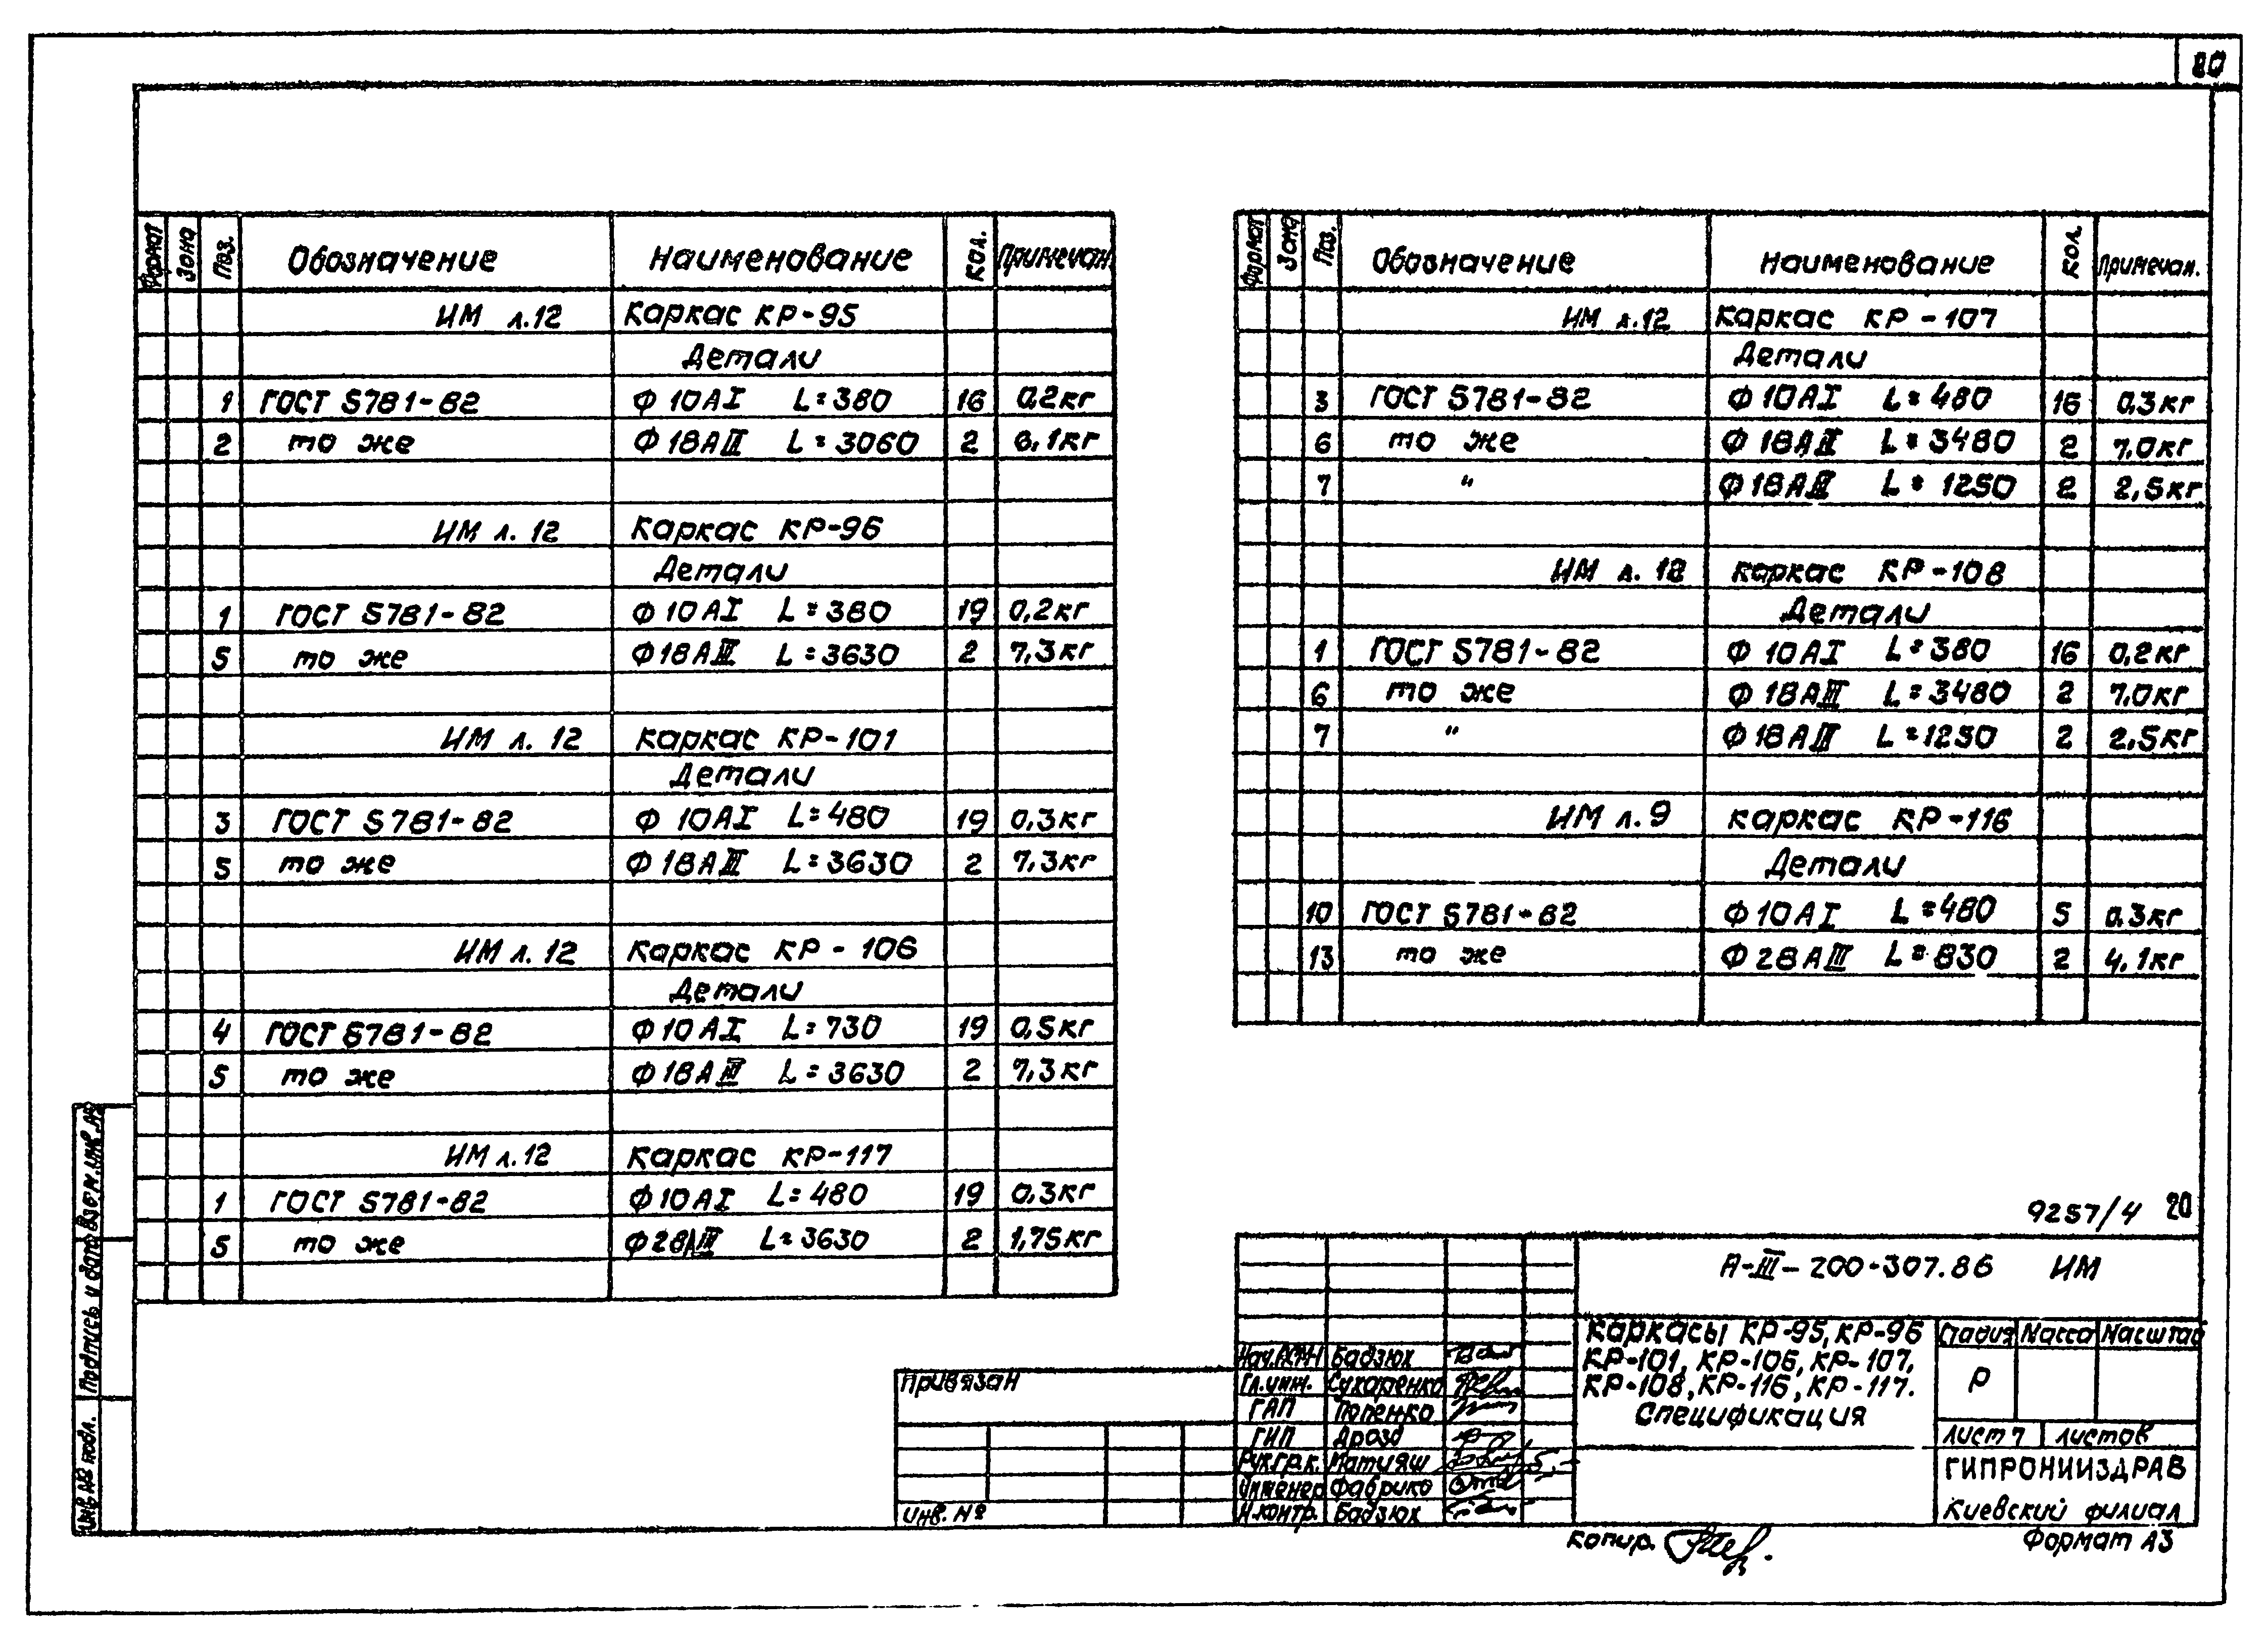 20
Формат Зона Поз. Обозначение Наименование Кол. Примечан.
ИМ л.12 Каркас КР-95
Детали
1 ГОСТ 5781-82 Ф 10АI L=380 16 0,2кг
2 то же Ф 18АIII L=3060 2 6,1кг
ИМ л.12 Каркас КР-96
Детали
1 ГОСТ 5781-82 Ф 10АI L=380 19 0,2кг
5 то же Ф18АIII L=3630 2 7,3кг
ИМ л.12 Каркас КР-101
Детали
3 ГОСТ 5781-82 Ф 10АI L=480 19 0,3кг
5 то же Ф 18АIII L=3630 2 7,3кг
ИМ л.12 Каркас КР-106
Детали
4 ГОСТ 5781-82 Ф10АI L=730 19 0,5кг
5 то же Ф18АIII L=3630 2 7,3кг
ИМ л.12 Каркас КР-117
1 ГОСТ 5781-82 Ф10АI L=480 19 0,3кг
5 то же Ф28АIII L=3630 2 1,75кг
Формат Зона Поз. Обозначение Наименование Кол. Примечан.
ИМ л.12 Каркас КР-107
Детали
3 ГОСТ 5781-82 Ф 10АI L=480 16 0,3кг
6 то же Ф 18АIII L=3480 2 7,0кг
7 " Ф18АIII L=1250 2 2,5кг
ИМ л.12 Каркас КР-108
Детали
1 ГОСТ 5781-82 Ф 10АI L=380 16 0,2кг
6 то же Ф 18АIII L=3480 2 7,0кг
7 " Ф18АIII L=1250 2 2,5кг
ИМ л.9 Каркас КР-116
Детали
10 ГОСТ 5781-82 Ф10АI L=480 5 0,3кг
13 то же Ф28АIII L=830 2 4,1кг
9257/4 20
А-III-200-307.86 ИМ
Каркасы КР-95, КР-96
КР-101, КР-106, КР-107,
КР-108, КР-116, КР-117.
Спецификация
Стадия Масса Масштаб
Р
Лист 7 Листов
ГИПРОНИИЗДРАВ
Киевский филиал
Нач.АСМ-1 Бадзюх
Гл.инж. Сухаренко
ГАП Попенко
ГИП Дрозд
Рук.гр.к. Матияш
Инженер Фабрико
Н.контр. Бадзюх
Привязан
Инв. №
Копир.
Формат А3
Взам.инв.№
Подпись и дата
Инв.№ подл.